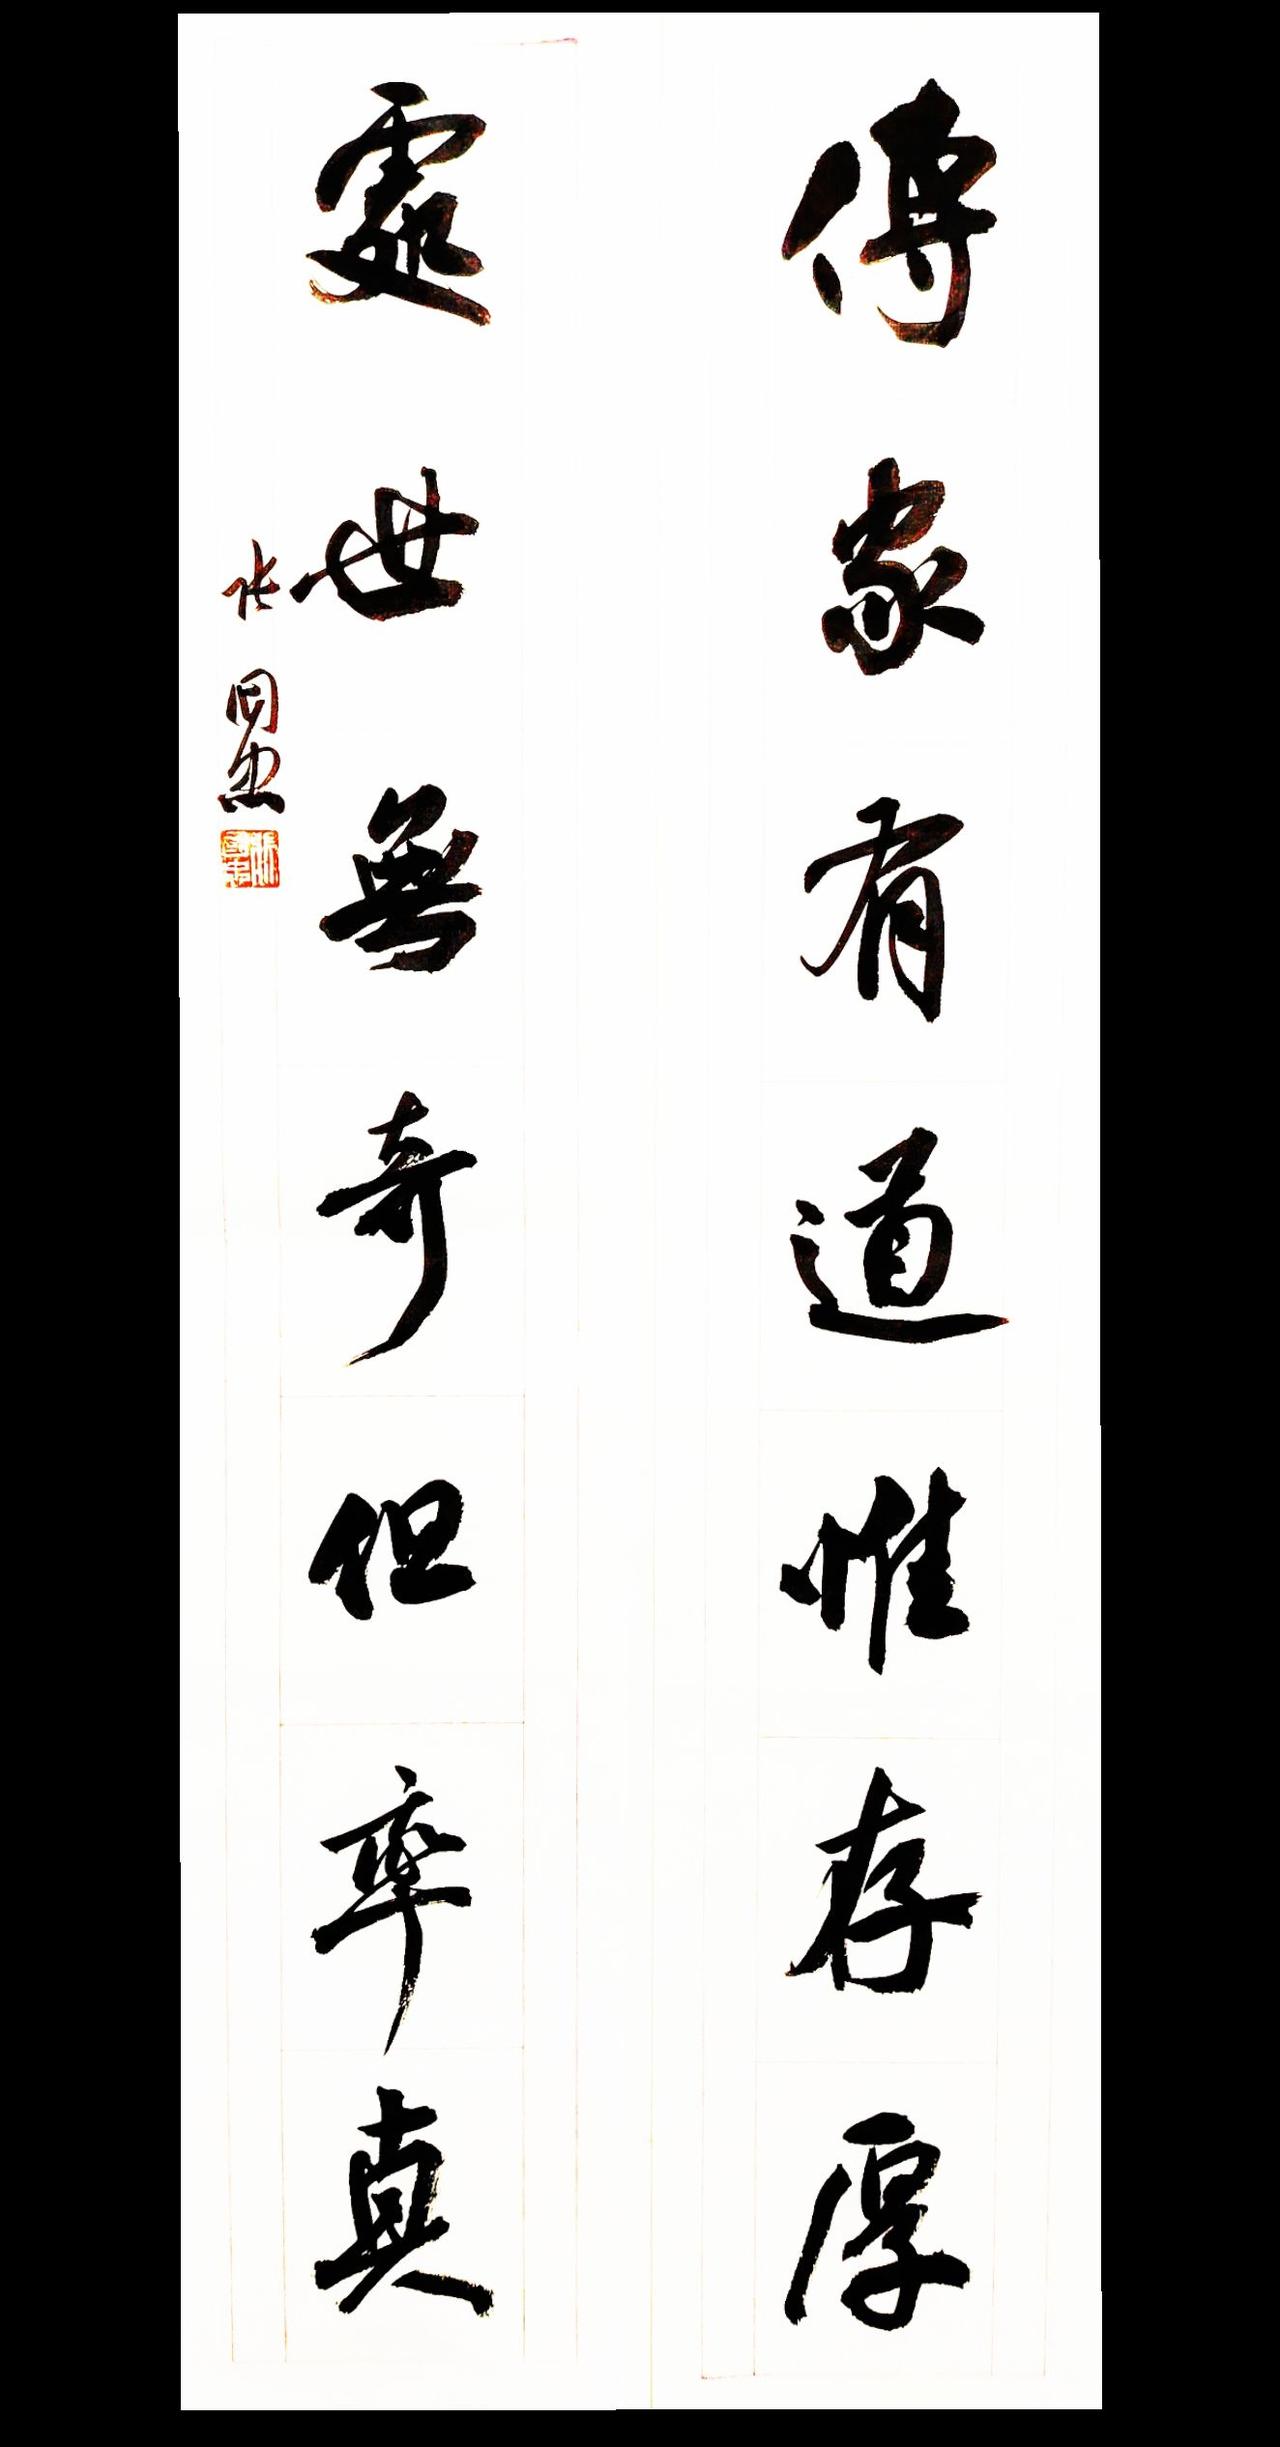 傳家有道惟存厚
處世無奇但率真
張国忠